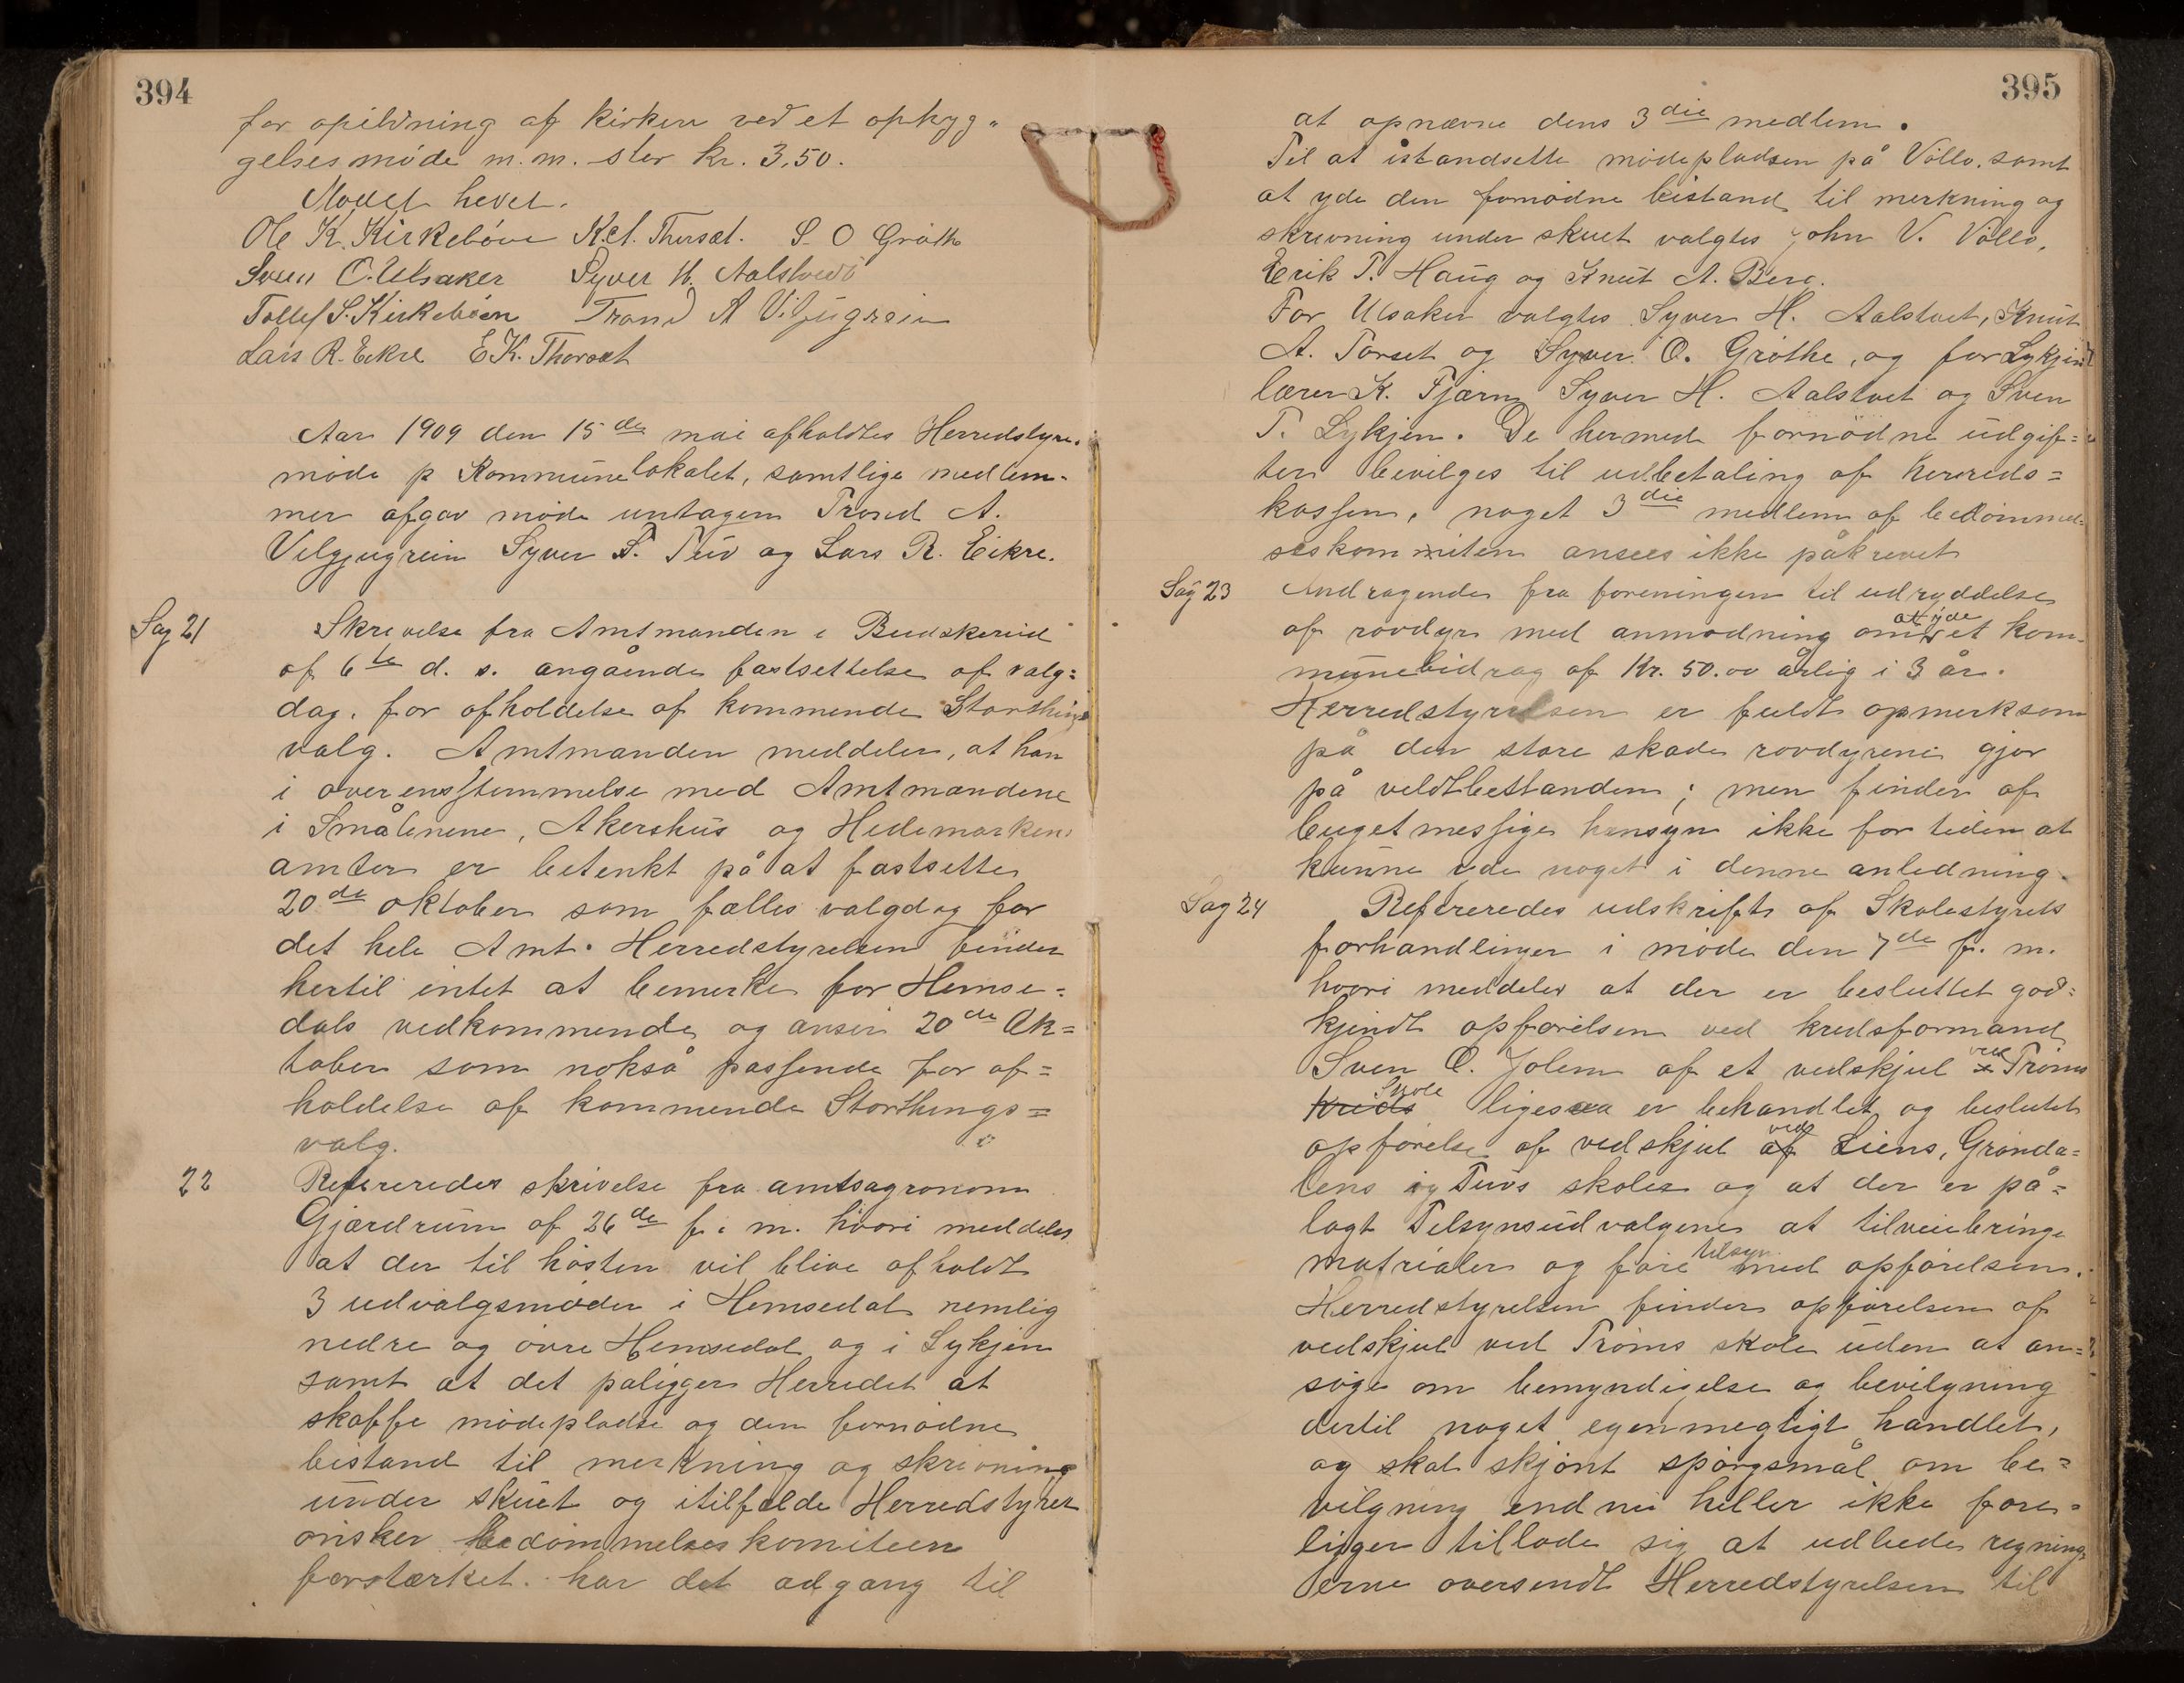 394
for opildning af kirken ved et opbyg„
gelsesmöde m.m. stor kr. 3,50.
Mödet hevet.
Ole K. Kirkeböen K.A. Thorset. S. O Gröthe
Sven O. Ulsaker Syver H. Aalstveit
Tollef S. Kirkeböen Trond A Viljugrein
Lars R. Eikre E.K. Thorset
Aar 1909 den 15de mai afholdtes Herredstyre.
möde p Kommunelokalet, samtlige medlem-
mer afgav möde untagen Trond A.
Velgjugrein Syver T. Tuv og Lars R. Eikre.
Sag 21 Skrivelse fra Amtmanden i Budskerud
af 6te d. s. angående fastsettelse af valg=
dag. for afholdelse af kommende Storthings
valg. Amtmanden meddeler, at han
i overensstemmelse med Amtmandene
i Smålenene, Akershus og Hedemarkens
amter er betenkt på at fastsette
20de oktober som fælles valgdag for
det hele Amt. Herredstyrelsen finder
hertil intet at bemerke for Hemse=
dals vedkommende og anser 20de Ok=
tober som nokså passende for af=
holdelse af kommende Storthings=
valg.
22 Refereredes skrivelse fra amtsagronom
Gjærdrum af 26de f. m. hvori meddeles
at der til hösten vil blive afholdt
3 udvalgsmöder i Hemsedal nemlig
nedre og övre Hemsedal og i Lykjen
samt at det paligger Herredet at
skaffe mödepladse og den fornödne
bistand til merkning og skrivning
under skuet og itilfælde Herredstyret
önsker bedömmelseskomiteen
forstærket. har det adgang til
395
at opnævne dens 3die medlem.
Til at istandsette mödepladsen på Völlo. samt
at yde den fornödne bistand til merkning og
skrivning under skuet valgtes John V. Völlo,
Erik T. Haug og Knut A. Berg.
For Ulsaker valgtes Syver H. Aalstvet, Knut
A. Torset og Syver O. Gröthe, og for Lykjen
lærer K. Fjærn Syver H. Aalstvet og Sven
T. Lykjen. De hermed fornödne udgif=
ter bevilges til udbetaling af herreds=
kassen, noget 3die medlem af bedömmel=
seskommiten ansees ikke påkrevet
Sag 23 Andragende fra foreningen til udryddelse
af rovdyr med anmodning om at yde et kom-
munebidrag af Kr. 50.00 årlig i 3 år.
Herredstyrelsen er fuldt opmerksom
på den store skade rovdyrene gjör
på veldtbestanden; men finder af
bugetmessige hensyn ikke for tiden at
kunne yde noget i denne anledning.
Sag 24 Refereredes udskrift af Skolestyrets
forhandlinger i möde den 7de f. m.
hvori meddeles at der er besluttet god=
kjendt opförelsen ved kredsformand
Sven O. Jolem af et vedskjul ved Tröims
Kreds Skole ligesaa er behandlet og besluttet
opförelse af vedskjul ved Liens, Grönda=
lens og Tuvs skoler og at der er på=
lagt Tilsynsudvalgene at tilveiebringe
matrialer og före tilsyn med opförelsen.
Herredstyrelsen finder opförelsen af
vedskjul ved Tröims skole uden at an=
söge om bemyndigelse og bevilgning
dertil noget egenmegtigt handlet,
og skal skjönt spörgsmål om be=
vilgning endnu heller ikke fore=
ligger tillade sig at udbede regning=
erne oversendt Herredstyrelsen til